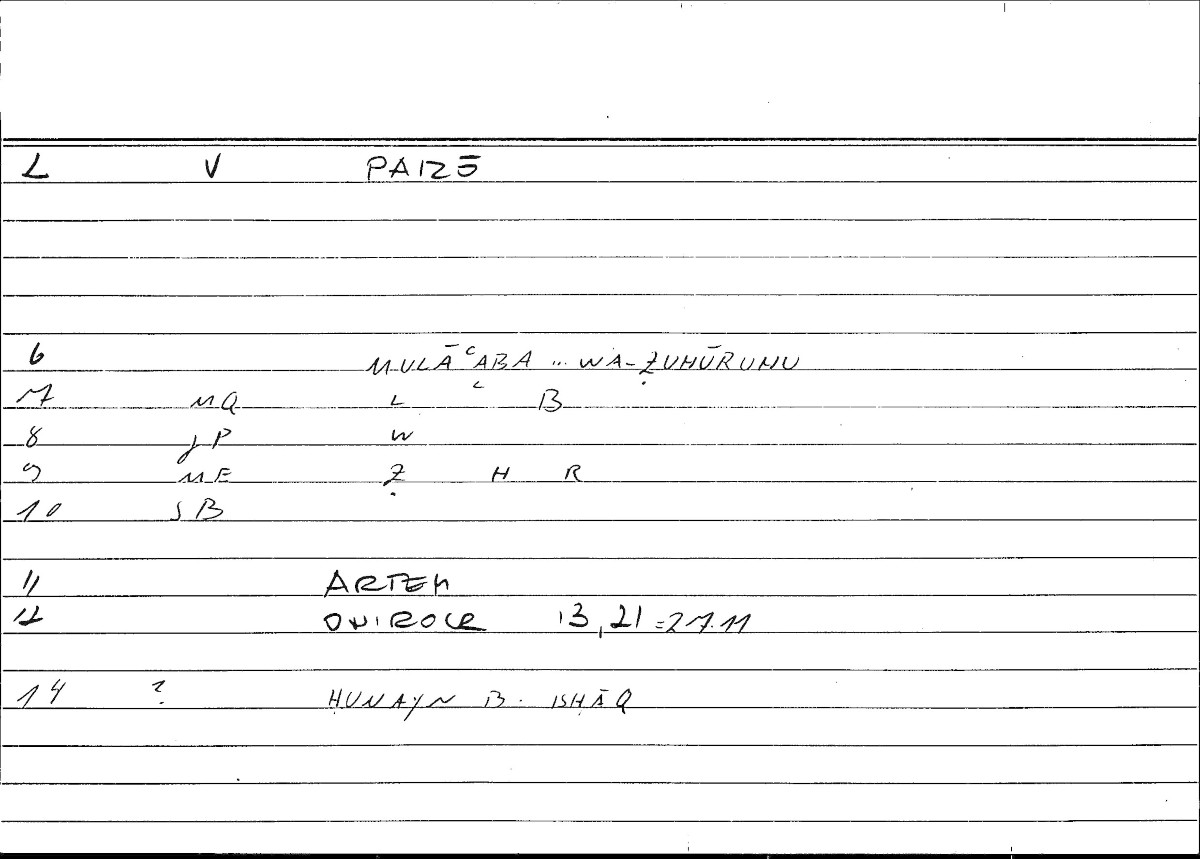 L V PAIZŌ
6 MULĀʿABA ... WA-ẒUHŪRUHU
7 MQ L ʿ B
8 JP W
9 ME Ẓ H R
10 SB
11 ARTEM
12 ONIROCR 13,21 = 27.11
14 ? ḤUNAYN B. ISḤĀQ